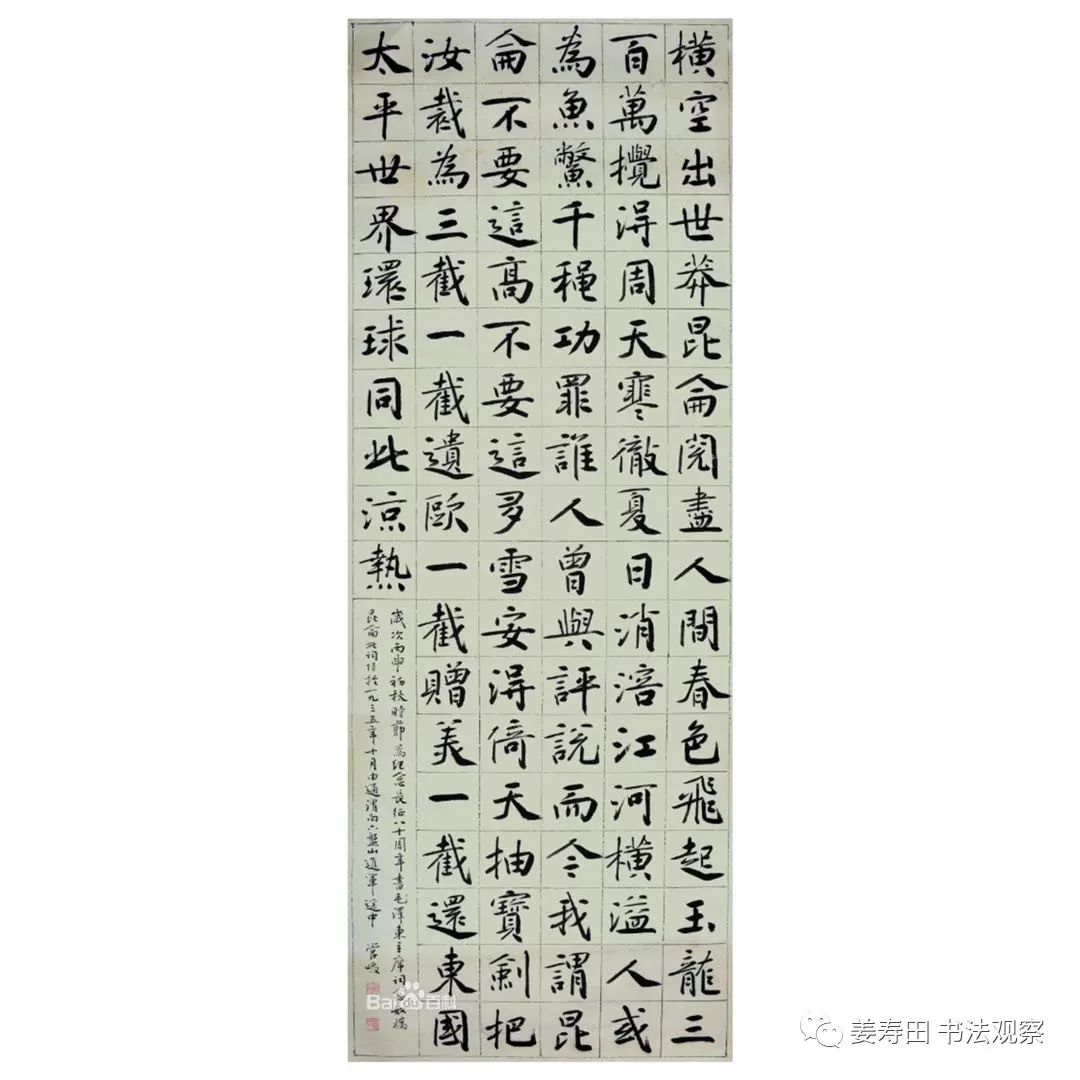 横空出世莽昆侖閱盡人間春色飛起玉龍三
百萬攪得周天寒徹夏日消溶江河橫溢人或
為魚鱉千穐功罪誰人曾與評說而今我謂昆
侖不要這高不要這多雪安得倚天抽寶劍把
汝裁為三截一截遺歐一截贈美一截還東國
太平世界環球同此涼熱
歲次丙申初秋時節為紀念長征八十周年書毛澤東主席詞念奴嬌
昆侖此詞作於一九三五年十月由通渭向六盤山進軍途中 管峻
Bai百科
姜寿田 书法观察